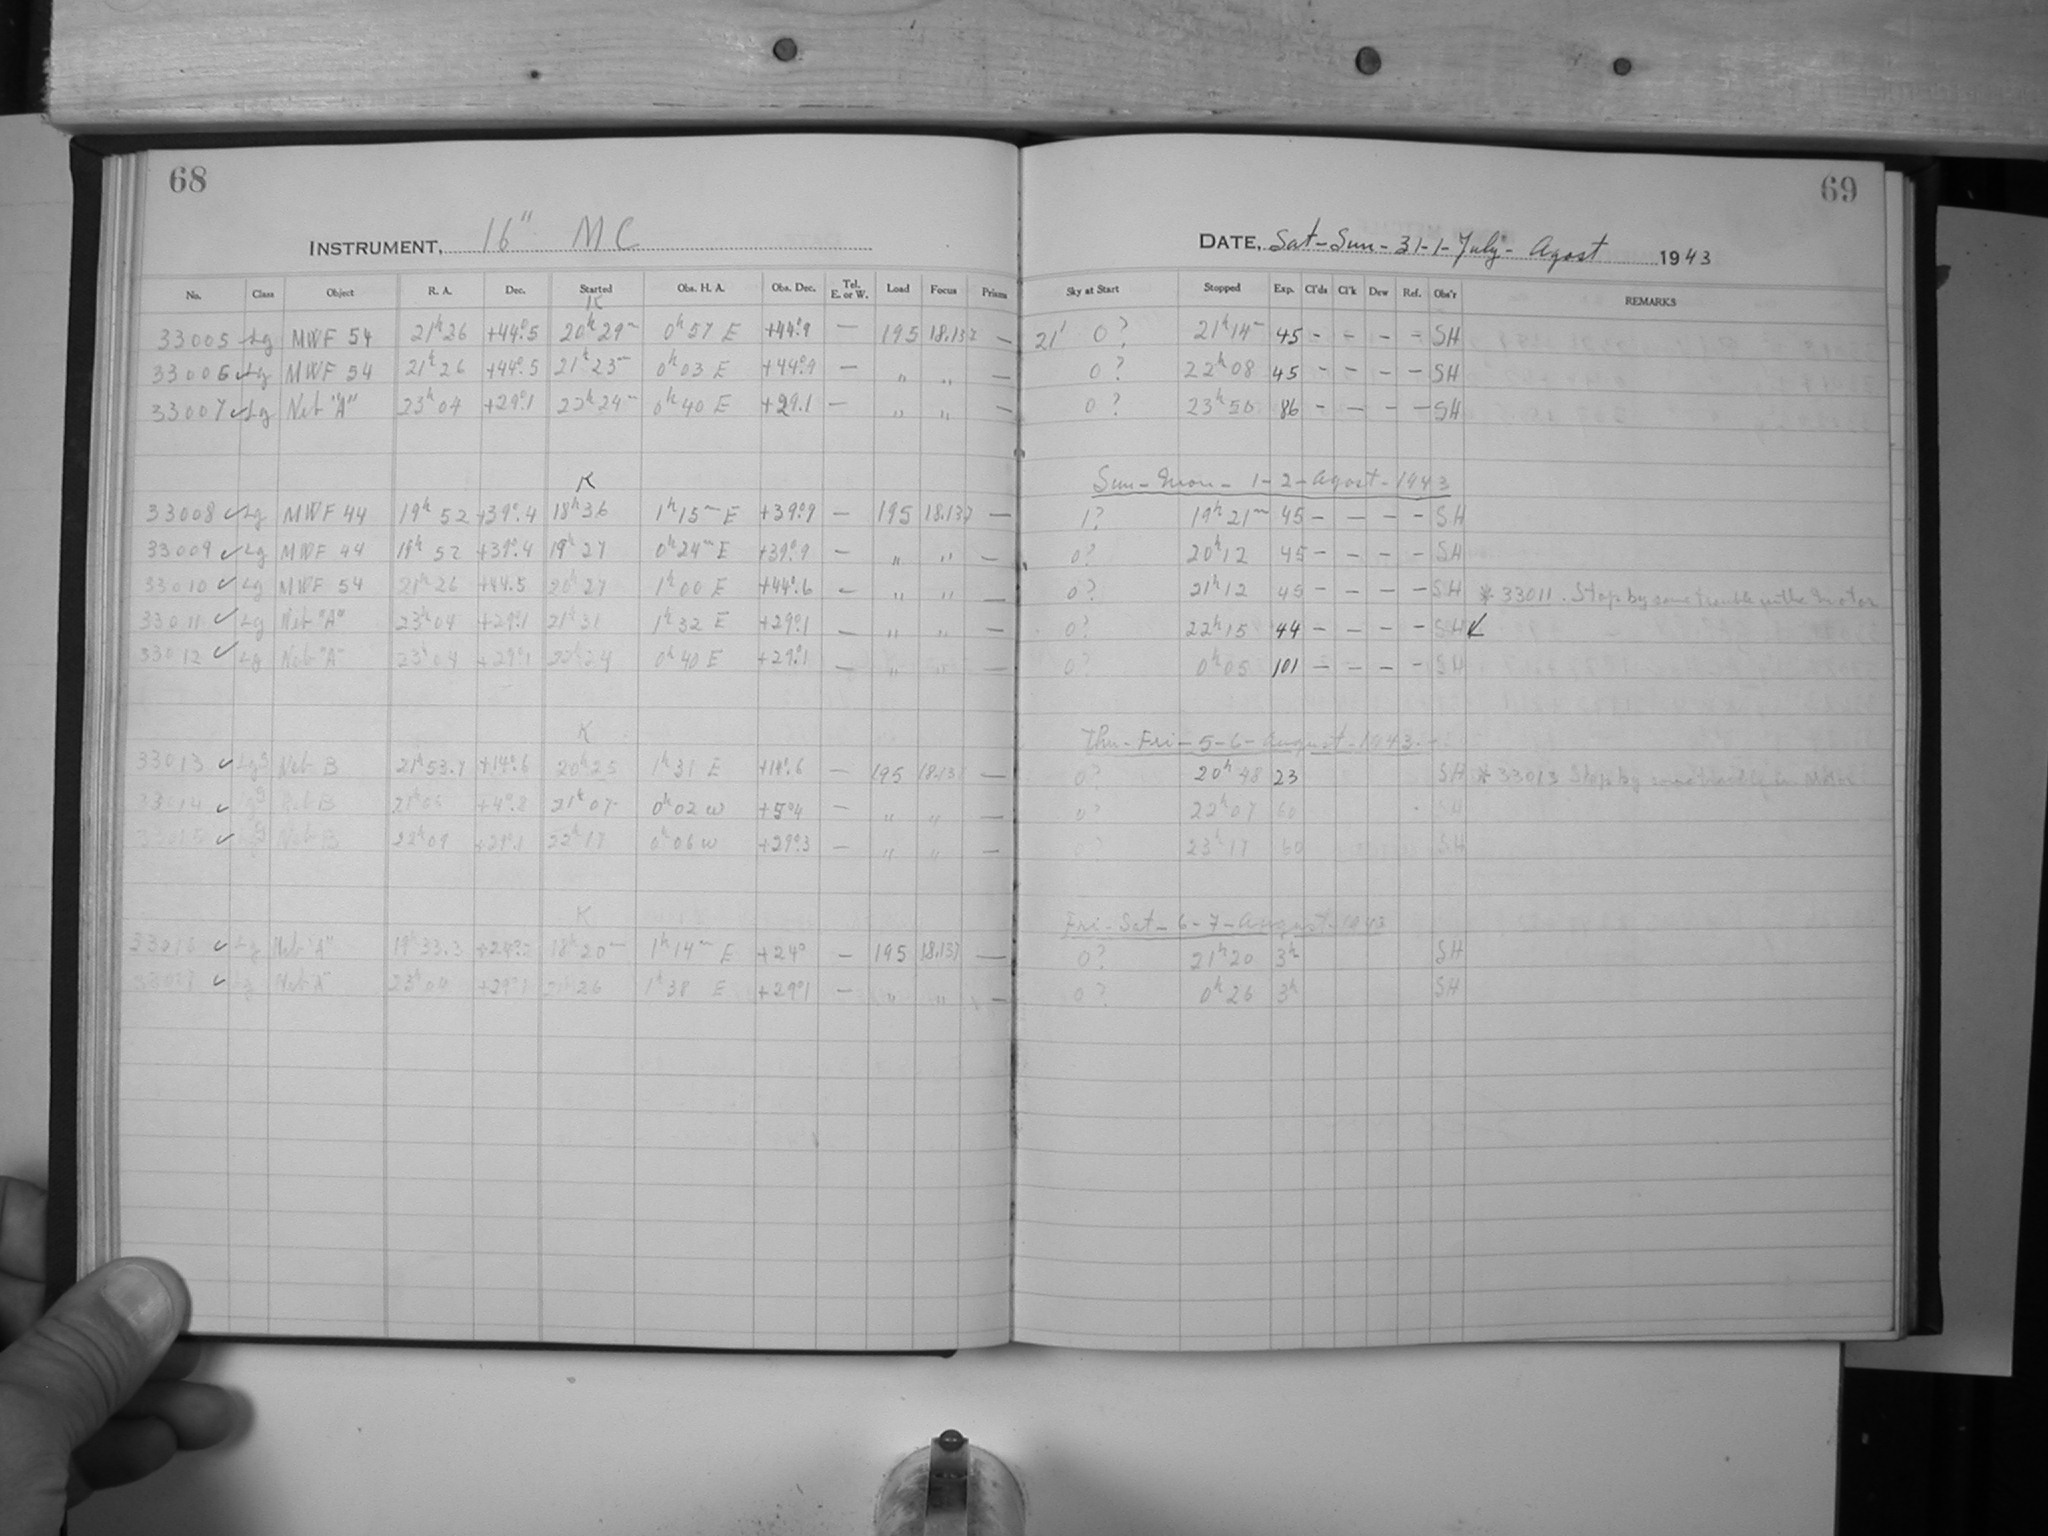 68
INSTRUMENT, 16" MC
No. Class Object R. A. Dec. Started Obs. H. A. Obs. Dec. Tel. E. or W. Load Focus Prisms
K
33005 Lg MWF 54 21h 26 +44°.5 20h 29m 0h 57 E +44°.9 — 195 18.137 —
33006 ✓ Lg MWF 54 21h 26 +44°.5 21h 23m 0h 03 E +44°.9 — " " —
33007 ✓ Lg Neb "A" 23h 04 +29°.1 22h 24m 0h 40 E +29.1 — " " —
K
33008 ✓ Lg MWF 44 19h 52 +39°.4 18h 36 1h 15m E +39°.9 — 195 18.137 —
33009 ✓ Lg MWF 44 19h 52 +39°.4 19h 27 0h 24m E +39°.9 — " " —
33010 ✓ Lg MWF 54 21h 26 +44.5 20h 27 1h 00 E +44°.6 — " " —
33011 ✓ Lg Neb "A" 23h 04 +29°.1 21h 31 1h 32 E +29°.1 — " " —
33012 ✓ Lg Neb "A" 23h 04 +29°.1 22h 24 0h 40 E +29°.1 — " " —
K
33013 ✓ Neb B 21h 53.7 +14°.6 20h 25 1h 31 E +14°.6 — 195 18.137 —
33014 ✓ Neb B 21h 05 +4°.8 21h 07 0h 02 W +5°.4 — " " —
33015 ✓ Neb B 22h 09 +29°.1 22h 17 0h 06 W +29°.3 — " " —
K
33016 ✓ Lg Neb "A" 19h 33.3 18h 20m 1h 14m E +24° — 195 18.137 —
✓ Lg Neb "A" 23h 04 +29°.1 21h 26 1h 38 E +29°.1 — " " —
69
DATE, Sat-Sun-31-1-July-Agost 1943
Sky at Start Stopped Exp. Cl'ds Cl'k Dew Ref. Obs'r REMARKS
21' 0? 21h 14m 45 – – – – SH
0? 22h 08 45 – – – – SH
0? 23h 50 86 – – – – SH
Sun-Mon-1-2-Agost-1943
1? 19h 21m 45 – – – – SH
0? 20h 12 45 – – – – SH
0? 21h 12 45 – – – – SH * 33011. Stop by some trouble with motor
0? 22h 15 44 – – – – SH K
0? 0h 05 101 – – – – SH
Thu-Fri-5-6-August-1943
0? 20h 48 23 SH * 33013 Stop by some in Motor
0? 22h 07 60 SH
0? 23h 17 60 SH
Fri-Sat-6-7-August-1943
0? 21h 20 3h SH
0? 0h 26 3h SH